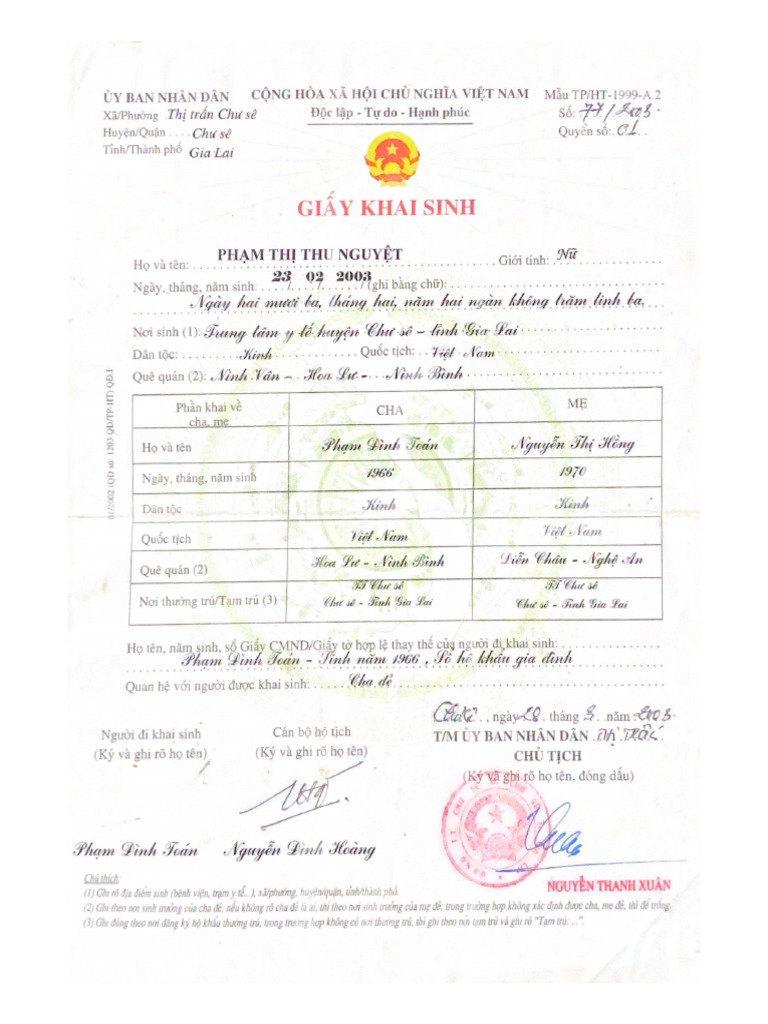 ỦY BAN NHÂN DÂN
Xã/Phường Thị trấn Chư sê
Huyện/Quận .... Chư sê
Tỉnh/Thành phố Gia Lai
CỘNG HÒA XÃ HỘI CHỦ NGHĨA VIỆT NAM
Độc lập - Tự do - Hạnh phúc
Mẫu TP/HT-1999-A.2
Số: 77/2003
Quyển số: 01
GIẤY KHAI SINH
Họ và tên: PHẠM THỊ THU NGUYỆT Giới tính: Nữ
Ngày, tháng, năm sinh: 23 02 2003 (ghi bằng chữ):
Ngày hai mươi ba, tháng hai, năm hai ngàn không trăm linh ba.
Nơi sinh (1): Trung tâm y tế huyện Chư sê – tỉnh Gia Lai
Dân tộc: Kinh Quốc tịch: Việt Nam
Quê quán (2): Ninh Vân – Hoa Lư – Ninh Bình
Phần khai về cha, mẹ CHA MẸ
Họ và tên Phạm Đình Toán Nguyễn Thị Hồng
Ngày, tháng, năm sinh 1966 1970
Dân tộc Kinh Kinh
Quốc tịch Việt Nam Việt Nam
Quê quán (2) Hoa Lư - Ninh Bình Diễn Châu - Nghệ An
Nơi thường trú/Tạm trú (3) TT Chư sê Chư sê - Tỉnh Gia Lai TT Chư sê Chư sê - Tỉnh Gia Lai
01/2002 (QĐ số: 1203 QĐ/TP-HT) QD.I
Họ tên, năm sinh, số Giấy CMND/Giấy tờ hợp lệ thay thế của người đi khai sinh:
Phạm Đình Toán - Sinh năm 1966 , Sổ hộ khẩu gia đình
Quan hệ với người được khai sinh: Cha đẻ
ngày 28 tháng 3 năm 2003
Người đi khai sinh
(Ký và ghi rõ họ tên)
Cán bộ hộ tịch
(Ký và ghi rõ họ tên)
T/M ỦY BAN NHÂN DÂN Thị Trấn
CHỦ TỊCH
(Ký và ghi rõ họ tên, đóng dấu)
Phạm Đình Toán
Nguyễn Đình Hoàng
NGUYỄN THANH XUÂN
Chú thích:
(1) Ghi rõ địa điểm sinh (bệnh viện, trạm y tế...), xã/phường, huyện/quận, tỉnh/thành phố.
(2) Ghi theo nơi sinh trưởng của cha đẻ; nếu không rõ cha đẻ là ai, thì theo nơi sinh trưởng của mẹ đẻ; trong trường hợp không xác định được cha, mẹ đẻ, thì để trống.
(3) Ghi đúng theo nơi đăng ký hộ khẩu thường trú; trong trường hợp không có nơi thường trú, thì ghi theo nơi tạm trú và ghi rõ "Tạm trú: ...".